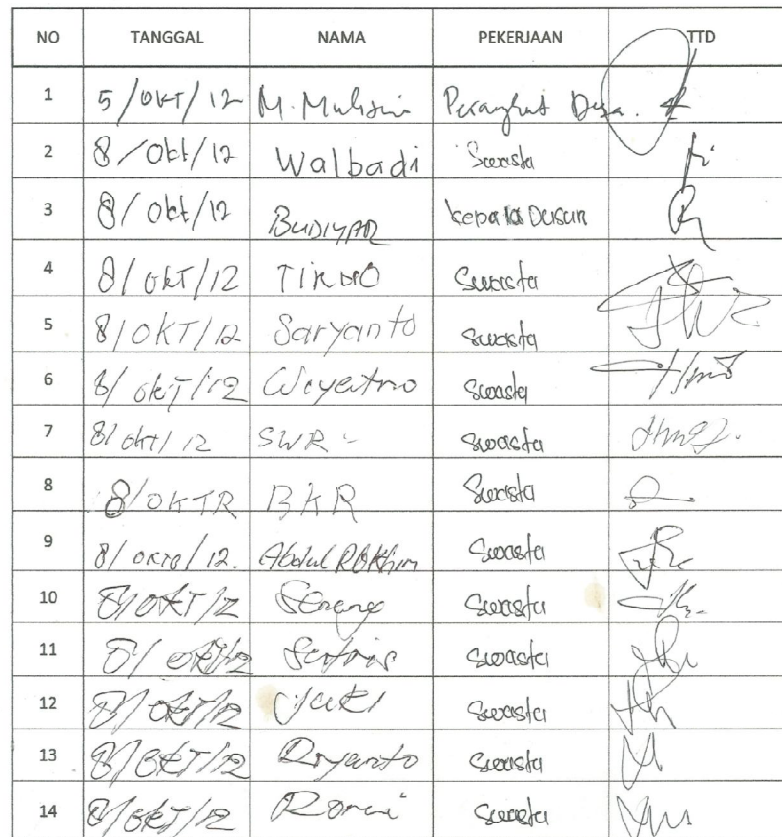 NO TANGGAL NAMA PEKERJAAN TTD
1 5/OKT/12 M. Muhsin Perangkat Desa.
2 8/Okt/12 Walbadi Swasta
3 8/Okt/12 BUDIYAR Kepala Dusun
4 8/OKT/12 TIRNO Swasta
5 8/OKT/12 Saryanto Swasta
6 8/OKT/12 Swasta
7 8/OKT/12 SWR - Swasta
8 8/OKTR BKR Swasta
9 8/OKTO/12. Abdul ROKhim Swasta
10 8/OKT/12 Swasta
11 8/OKT/12 Swasta
12 8/OKT/12 Swasta
13 8/OKT/12 Riyanto Swasta
14 8/OKT/12 Swasta